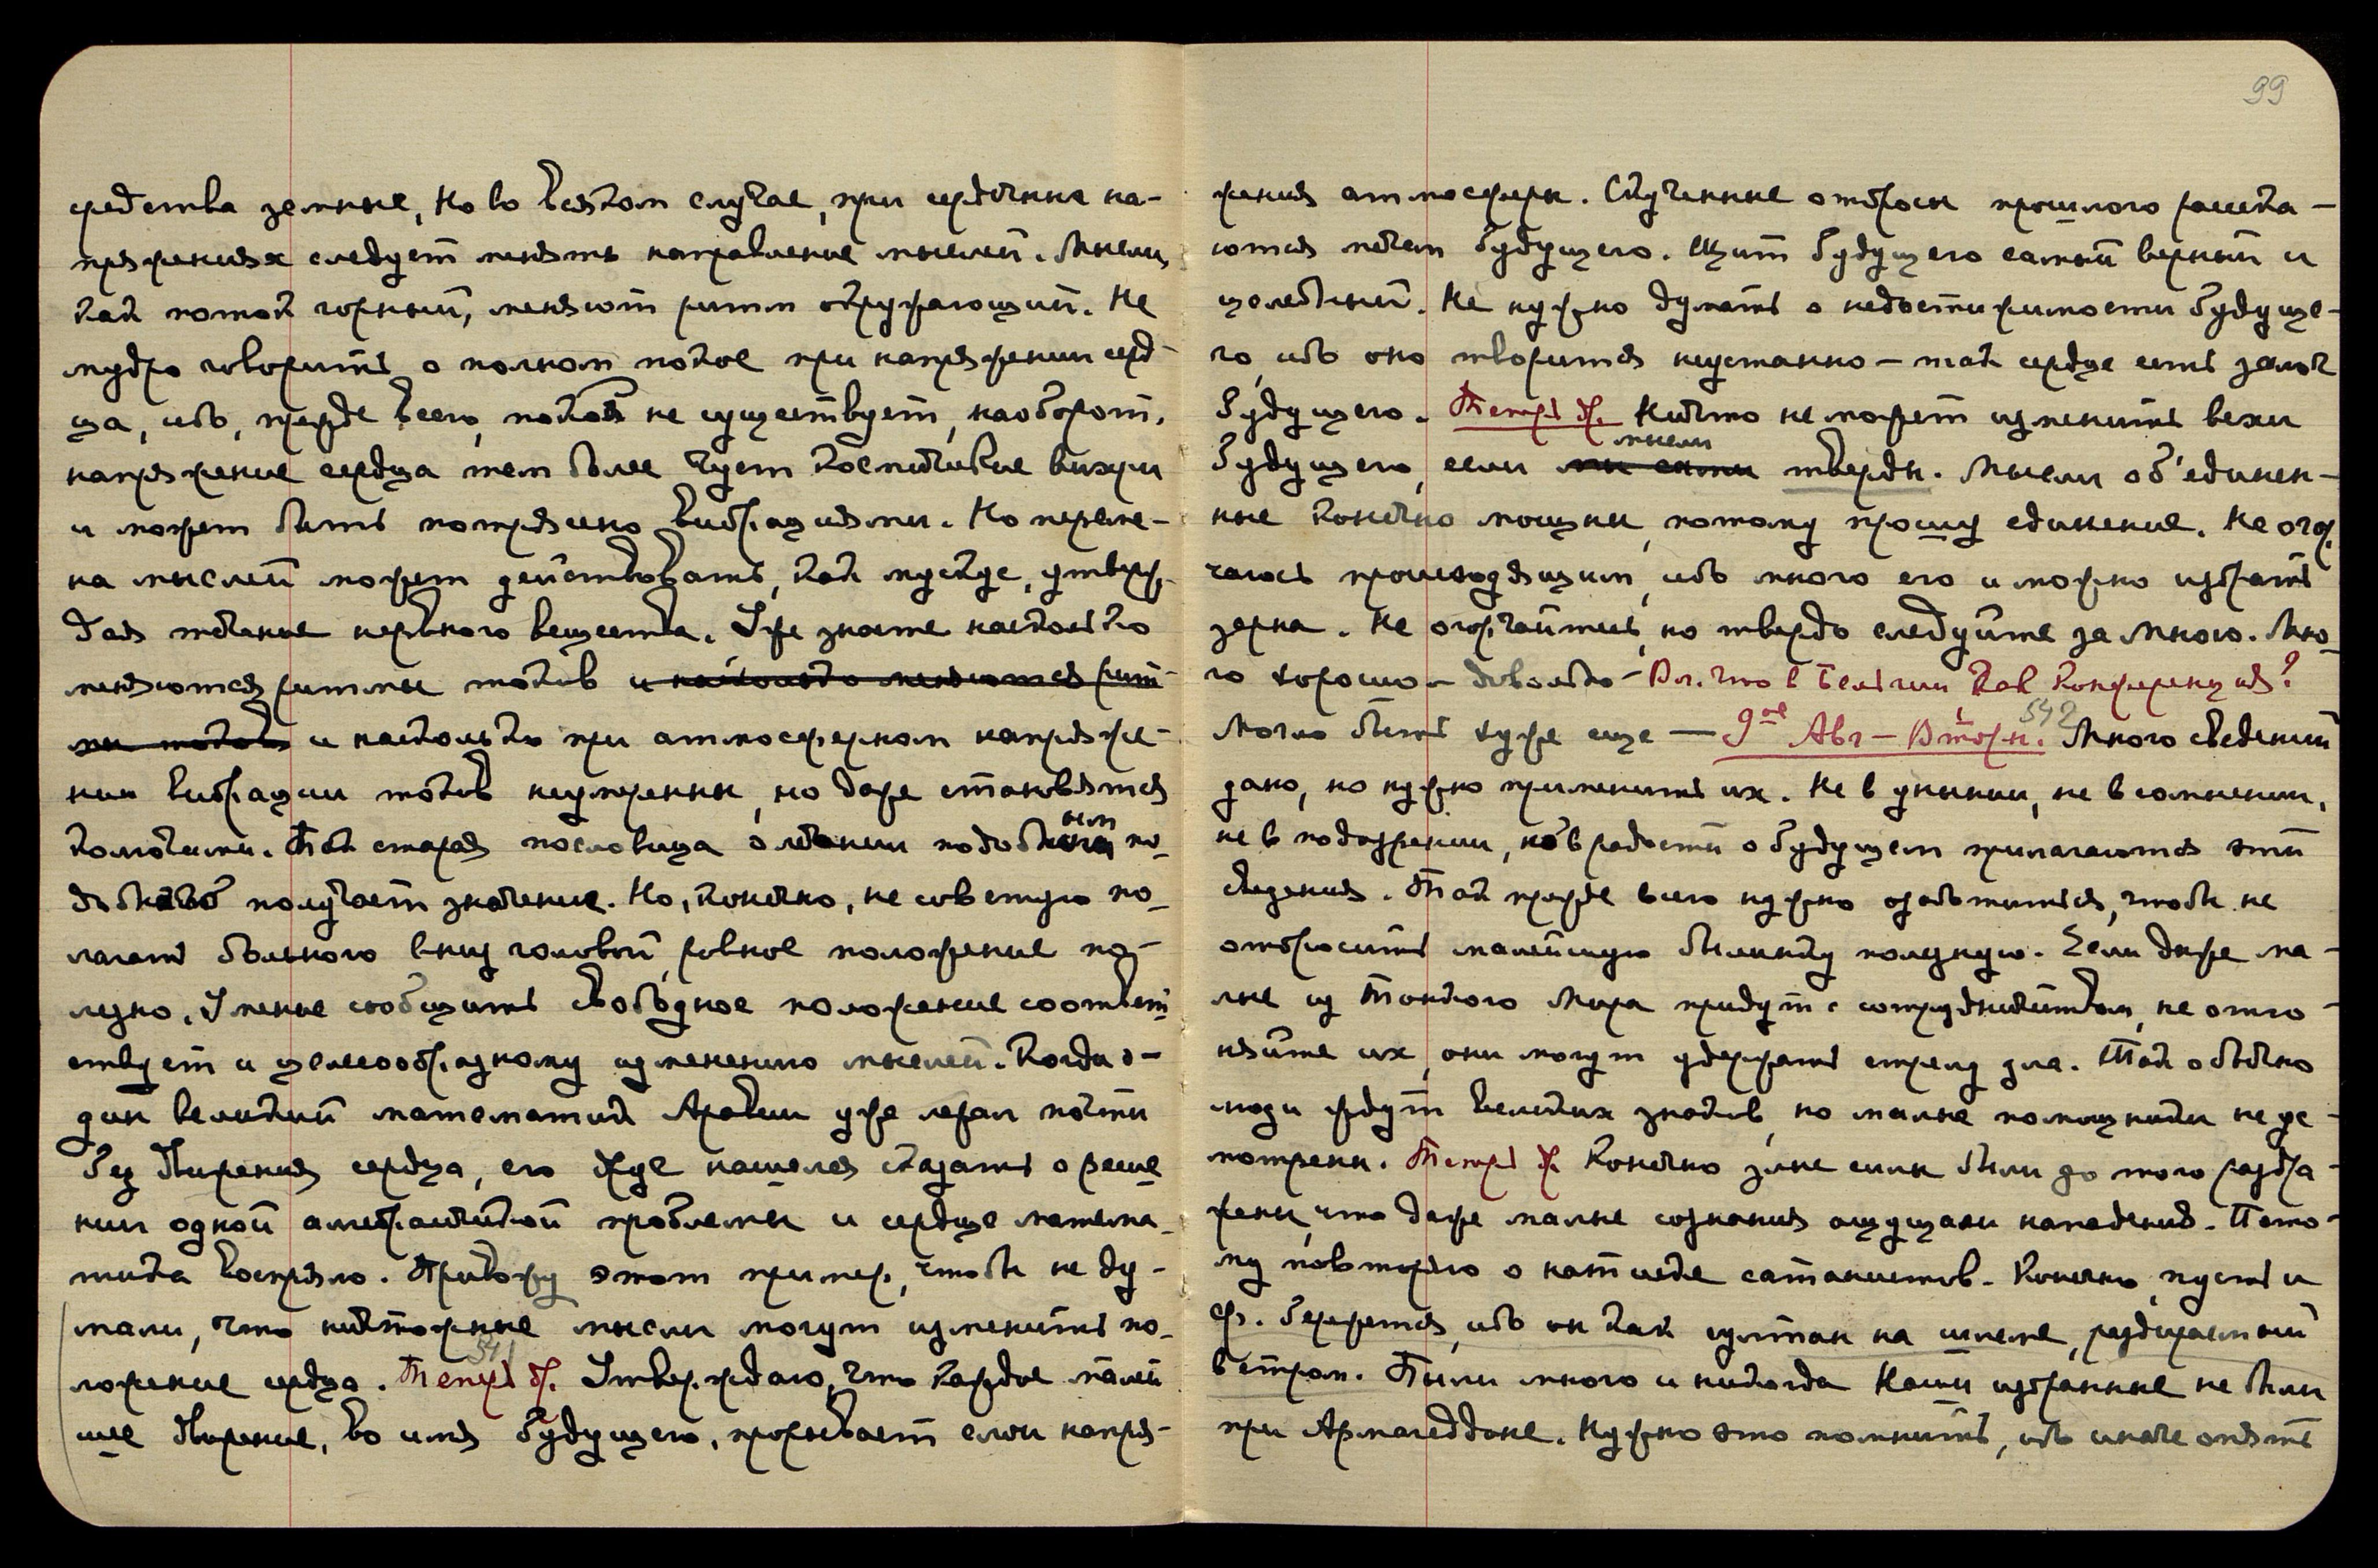 средства земные, Но во всяком случае, при сердечные на-
пряжениях следует менять направление мыслей. Мысли,
как поток горный, меняют ритм окружающий. Не
мудро говорить о полном покое при напряжении серд-
ца, ибо, прежде всего, покой не существует, наоборот,
напряжение сердца тем более чует космические вихри
и может быть потрясено вибрациями. Но переме-
на мыслей может действовать, как мускус, утверж-
дая течение нервного вещества. Уже знаете насколько
меняются ритмы токов и насколько меняются рит-
мы токов и насколько при атмосферном напряже-
нии вибрации токов неумеренны, но даже становятся
колючими. Так старая пословица о лечении подобным по-
добного получает значение. Но, конечно, не советую по-
лагать больного вниз головой, ровное положение по-
лезно. Умение сообщить свободное положение соответ-
ствует и целесообразному изменению мыслей. Когда о-
дин великий математик Аравии уже лежал почти
без биения сердца, его друг нашелся сказать о реше-
нии одной алгебраической проблемы и сердце матема-
тика воспряло. Привожу этот пример, чтобы не ду-
мали, что ничтожные мысли могут изменить по-
541
ложение сердца. Теперь др. Утверждаю, что каждое малей-
шее творение, во имя будущего, прорывает слои напря-
99
жения атмосферы. Сгущенные отбросы прошлого рассека-
ются мечем будущего. Щит будущего самый верный и
целебный. Не нужно думать о недостижимости будуще-
го, ибо оно творится неустанно – так сердце есть залог
будущего. Теперь др. Ничто не может изменить вехи
мысли
будущего, если мы сами тверды. Мысли об'единен-
ные конечно мощны, потому прошу единение. Не огор-
чаюсь происходящим, ибо много его и можно избрать
зерна. Не огорчайтесь, но твердо следуйте за Мною. Мно-
го хорошо – довольно – Вл. что в Бельгии как Конференция?
542
Могло быть хуже еще — 9ое Авг – Вторн. Много сведений
дано, но нужно применить их. Не в унынии, не в сомнении,
не в подозрении, но в радости о будущем прилагаются эти
сведения. Так прежде всего нужно озаботиться, чтобы не
отбросить малейшую былинку полезную. Если даже ма-
лые из Тонкого Мира придут с сотрудничеством, не отго-
няйте их, они могут удержать стрелу зла. Так обычно
люди ждут великих знаков, но малые помощники не ус-
мотрены. Теперь др. Конечно злые силы были до того раздра-
жены, что даже малые сознания ощущали нападения. Пото-
му повторяю о натиске сатанистов. Конечно, пусть и
Ф. бережется, ибо он как султан на шлеме, раздираемый
ветром. Были много и никогда Наши избранные не были
при Армагеддоне. Нужно это помнить, ибо иначе опять